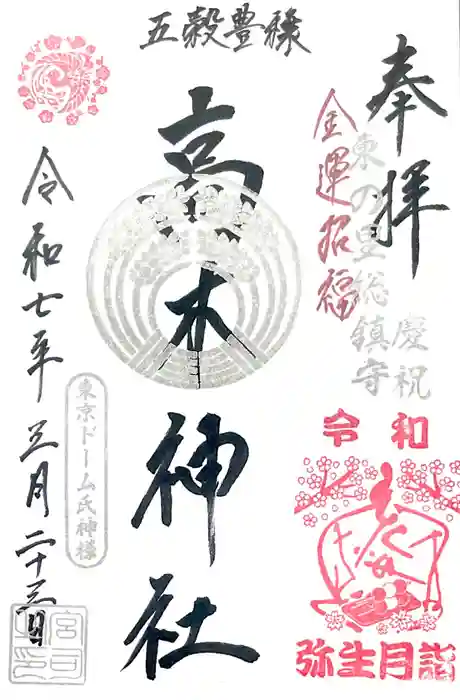 五穀豊穣
奉拝
金運招福
東の里総鎮守
慶祝
高木神社
令和七年三月二十三日
東京ドーム氏神様
令和
弥生月詣
宮司